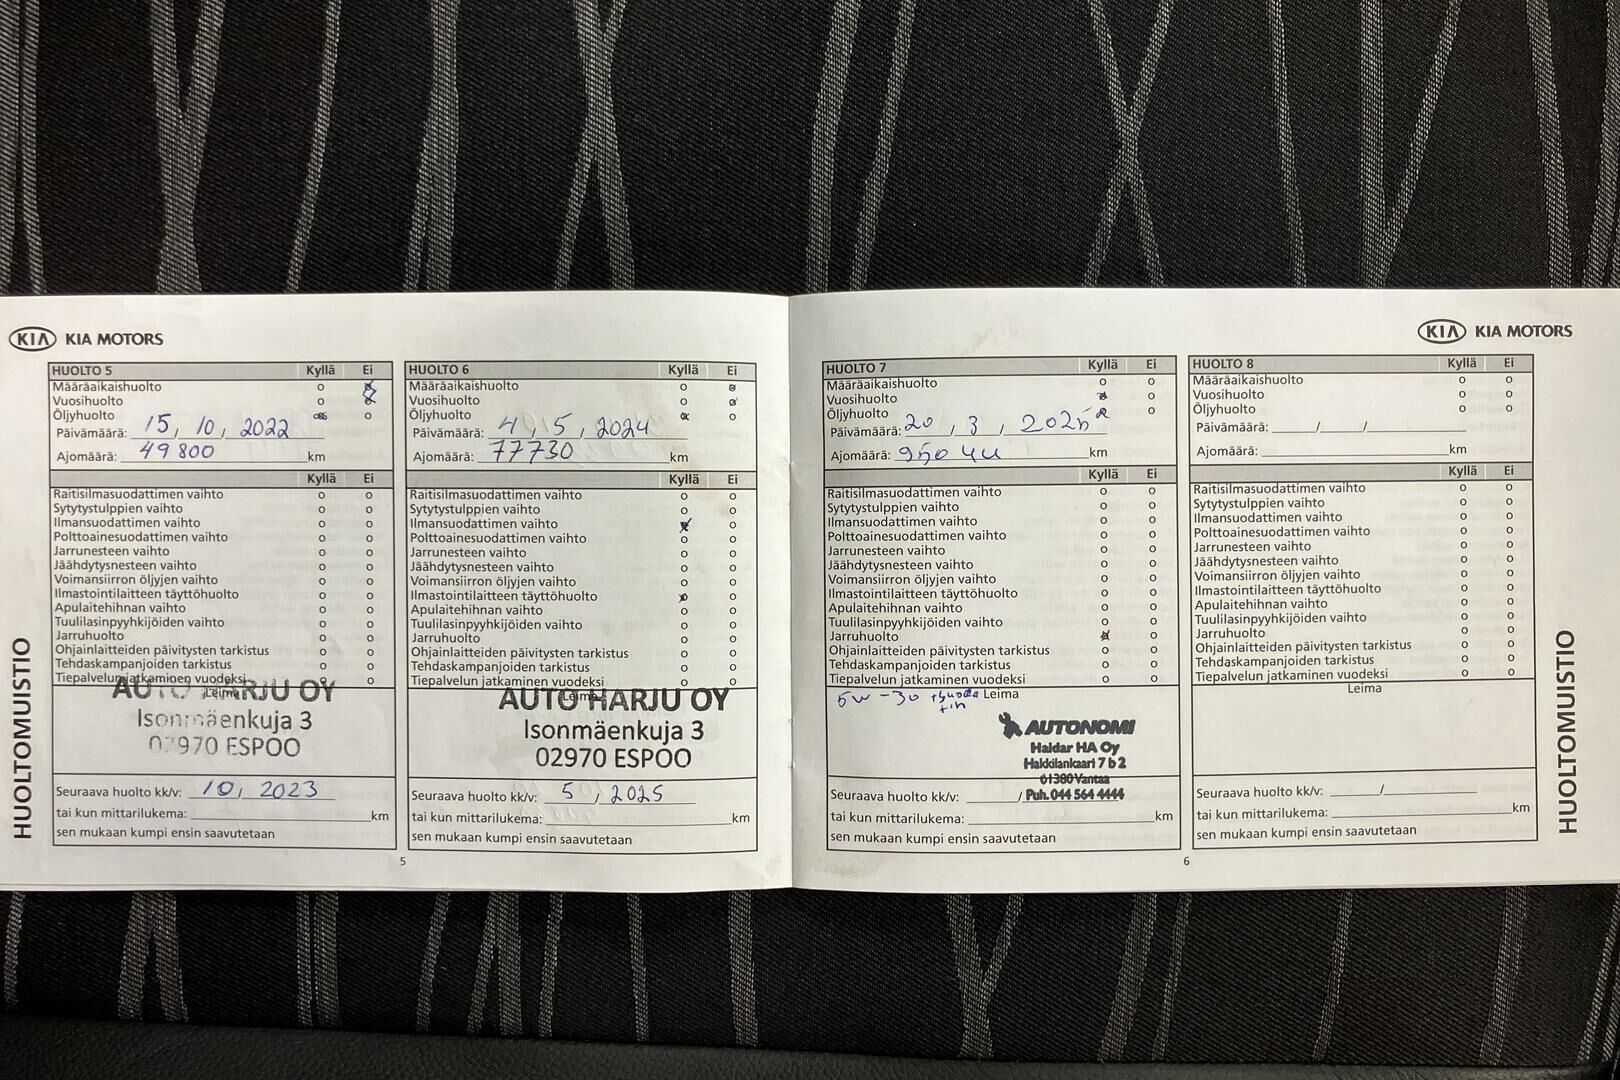 KIA KIA MOTORS
HUOLTOMUISTIO
HUOLTO 5 Kyllä Ei
Määräaikaishuolto o
Vuosihuolto o
Öljyhuolto o
Päivämäärä: 15, 10, 2022
Ajomäärä: 49800 km
Kyllä Ei
Raitisilmasuodattimen vaihto o o
Sytytystulppien vaihto o o
Ilmansuodattimen vaihto o o
Polttoainesuodattimen vaihto o o
Jarrunesteen vaihto o o
Jäähdytysnesteen vaihto o o
Voimansiirron öljyjen vaihto o o
Ilmastointilaitteen täyttöhuolto o o
Apulaitehihnan vaihto o o
Tuulilasinpyyhkijöiden vaihto o o
Jarruhuolto o o
Ohjainlaitteiden päivitysten tarkistus o o
Tehdaskampanjoiden tarkistus o o
Tiepalvelun jatkaminen vuodeksi o o
Leima
AUTO HARJU OY
Isonmäenkuja 3
02970 ESPOO
Seuraava huolto kk/v: 10, 2023
tai kun mittarilukema: km
sen mukaan kumpi ensin saavutetaan
HUOLTO 6 Kyllä Ei
Määräaikaishuolto o
Vuosihuolto o
Öljyhuolto o
Päivämäärä: 4, 5, 2024
Ajomäärä: 77730 km
Kyllä Ei
Raitisilmasuodattimen vaihto o o
Sytytystulppien vaihto o o
Ilmansuodattimen vaihto x o
Polttoainesuodattimen vaihto o o
Jarrunesteen vaihto o o
Jäähdytysnesteen vaihto o o
Voimansiirron öljyjen vaihto o o
Ilmastointilaitteen täyttöhuolto x o
Apulaitehihnan vaihto o o
Tuulilasinpyyhkijöiden vaihto o o
Jarruhuolto o o
Ohjainlaitteiden päivitysten tarkistus o o
Tehdaskampanjoiden tarkistus o o
Tiepalvelun jatkaminen vuodeksi o o
Leima
AUTO HARJU OY
Isonmäenkuja 3
02970 ESPOO
Seuraava huolto kk/v: 5 / 2025
tai kun mittarilukema: km
sen mukaan kumpi ensin saavutetaan
5
KIA KIA MOTORS
HUOLTO 7 Kyllä Ei
Määräaikaishuolto o o
Vuosihuolto x o
Öljyhuolto x o
Päivämäärä: 20, 3, 2025
Ajomäärä: km
Kyllä Ei
Raitisilmasuodattimen vaihto o o
Sytytystulppien vaihto o o
Ilmansuodattimen vaihto o o
Polttoainesuodattimen vaihto o o
Jarrunesteen vaihto o o
Jäähdytysnesteen vaihto o o
Voimansiirron öljyjen vaihto o o
Ilmastointilaitteen täyttöhuolto o o
Apulaitehihnan vaihto o o
Tuulilasinpyyhkijöiden vaihto o o
Jarruhuolto x o
Ohjainlaitteiden päivitysten tarkistus o o
Tehdaskampanjoiden tarkistus o o
Tiepalvelun jatkaminen vuodeksi o o
5w-30 Leima
AUTONOMI
Haidar HA Oy
Hakkilankaari 7 b 2
01380 Vantaa
Puh. 044 564 4444
Seuraava huolto kk/v: /
tai kun mittarilukema: km
sen mukaan kumpi ensin saavutetaan
HUOLTO 8 Kyllä Ei
Määräaikaishuolto o o
Vuosihuolto o o
Öljyhuolto o o
Päivämäärä: / /
Ajomäärä: km
Kyllä Ei
Raitisilmasuodattimen vaihto o o
Sytytystulppien vaihto o o
Ilmansuodattimen vaihto o o
Polttoainesuodattimen vaihto o o
Jarrunesteen vaihto o o
Jäähdytysnesteen vaihto o o
Voimansiirron öljyjen vaihto o o
Ilmastointilaitteen täyttöhuolto o o
Apulaitehihnan vaihto o o
Tuulilasinpyyhkijöiden vaihto o o
Jarruhuolto o o
Ohjainlaitteiden päivitysten tarkistus o o
Tehdaskampanjoiden tarkistus o o
Tiepalvelun jatkaminen vuodeksi o o
Leima
Seuraava huolto kk/v: /
tai kun mittarilukema: km
sen mukaan kumpi ensin saavutetaan
6
HUOLTOMUISTIO